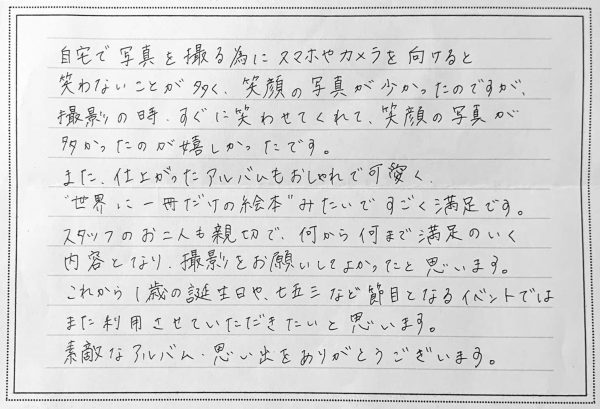 自宅で写真を撮る為にスマホやカメラを向けると
笑わないことが多く、笑顔の写真が少かったのですが、
撮影の時、すぐに笑わせてくれて、笑顔の写真が
多かったのが嬉しかったです。
また、仕上がったアルバムもおしゃれで可愛く、
"世界に一冊だけの絵本"みたいですごく満足です。
スタッフのお二人も親切で、何から何まで満足のいく
内容となり、撮影をお願いしてよかったと思います。
これから1歳の誕生日や、七五三など節目となるイベントでは
また利用させていただきたいと思います。
素敵なアルバム・思い出をありがとうございます。